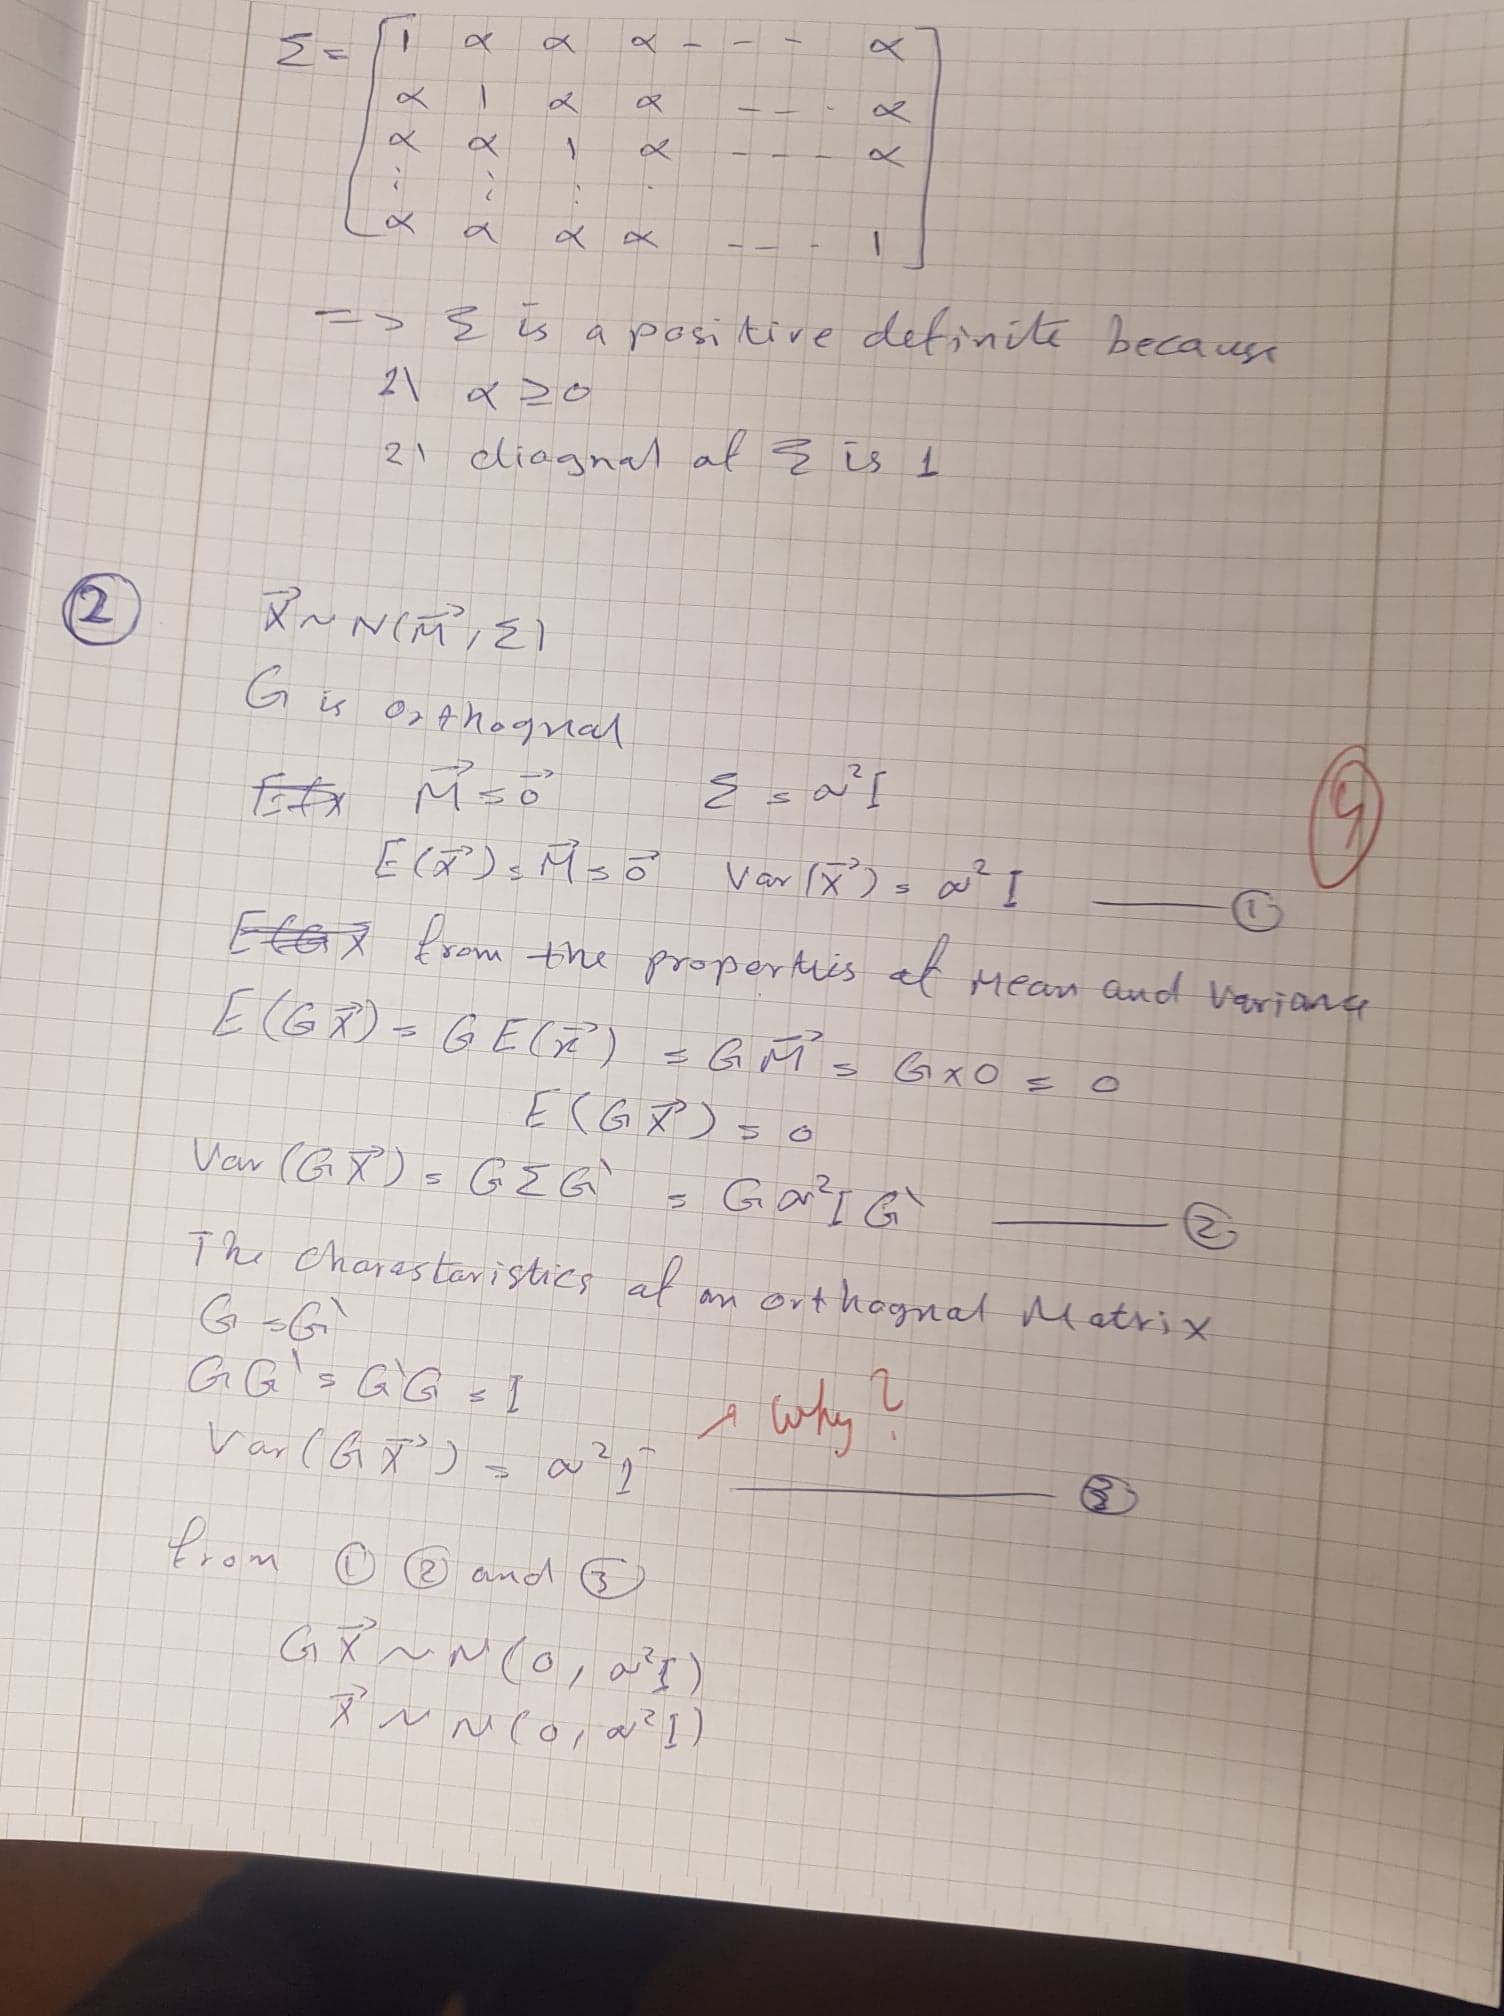 Σ = [ 1 α α α - - - α
α 1 α α - - - α
α α 1 α - - - α
⋮ ⋮ ⋮ ⋮
α α α α - - - 1 ]
=> Σ is a positive definite because
21 α ≥ 0
21 diagnal of Σ is 1
② X⃗ ~ N(M⃗, Σ)
G is orthognal
M⃗ = 0⃗ Σ = α²I
E(X⃗) = M⃗ = 0⃗ Var(X⃗) = α² I —— ①
from the propertiis of Mean and Variance
E(GX⃗) = G E(x⃗) = G M⃗ = G x 0 = 0
E(GX⃗) = 0
Var(GX⃗) = GΣG` = Gα²I G` —— ②
The charastaristics of an orthognal Matrix
G = G`
GG` = G`G = I
Why?
Var(GX⃗) = α²I —— ③
from ① ② and ③
GX⃗ ~ N(0, α²I)
X⃗ ~ N(0, α²I)